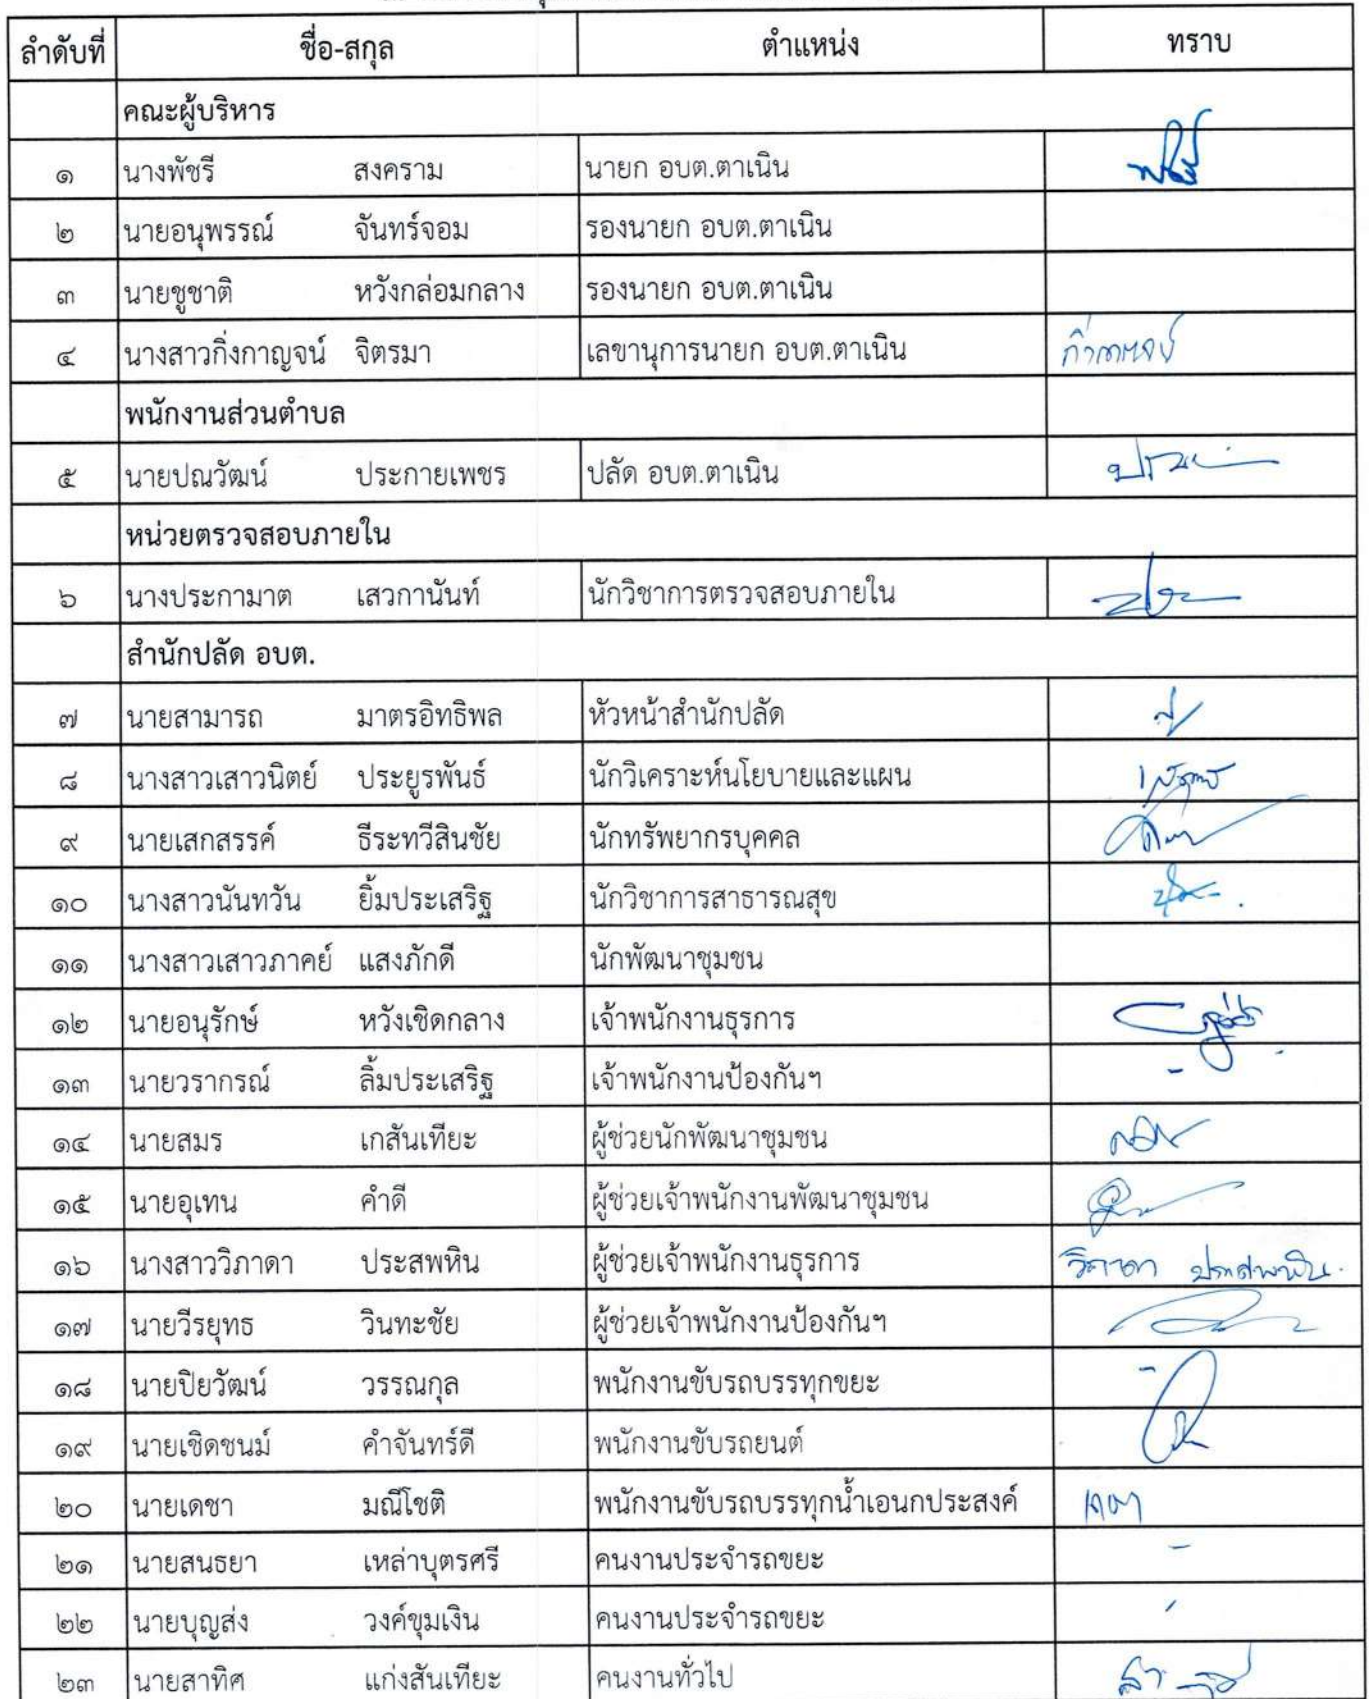 ลำดับที่ ชื่อ-สกุล ตำแหน่ง ทราบ
คณะผู้บริหาร
๑ นางพัชรี สงคราม นายก อบต.ตาเนิน
๒ นายอนุพรรณ์ จันทร์จอม รองนายก อบต.ตาเนิน
๓ นายชูชาติ หวังกล่อมกลาง รองนายก อบต.ตาเนิน
๔ นางสาวกิ่งกาญจน์ จิตรมา เลขานุการนายก อบต.ตาเนิน
พนักงานส่วนตำบล
๕ นายปณวัฒน์ ประกายเพชร ปลัด อบต.ตาเนิน
หน่วยตรวจสอบภายใน
๖ นางประกามาต เสวกานันท์ นักวิชาการตรวจสอบภายใน
สำนักปลัด อบต.
๗ นายสามารถ มาตรอิทธิพล หัวหน้าสำนักปลัด
๘ นางสาวเสาวนิตย์ ประยูรพันธ์ นักวิเคราะห์นโยบายและแผน
๙ นายเสกสรรค์ ธีระทวีสินชัย นักทรัพยากรบุคคล
๑๐ นางสาวนันทวัน ยิ้มประเสริฐ นักวิชาการสาธารณสุข
๑๑ นางสาวเสาวภาคย์ แสงภักดี นักพัฒนาชุมชน
๑๒ นายอนุรักษ์ หวังเชิดกลาง เจ้าพนักงานธุรการ
๑๓ นายวรากรณ์ ลิ้มประเสริฐ เจ้าพนักงานป้องกันฯ -
๑๔ นายสมร เกสันเทียะ ผู้ช่วยนักพัฒนาชุมชน
๑๕ นายอุเทน คำดี ผู้ช่วยเจ้าพนักงานพัฒนาชุมชน
๑๖ นางสาววิภาดา ประสพหิน ผู้ช่วยเจ้าพนักงานธุรการ วิภาดา ประสพหิน
๑๗ นายวีรยุทธ วินทะชัย ผู้ช่วยเจ้าพนักงานป้องกันฯ
๑๘ นายปิยวัฒน์ วรรณกุล พนักงานขับรถบรรทุกขยะ -
๑๙ นายเชิดชนม์ คำจันทร์ดี พนักงานขับรถยนต์
๒๐ นายเดชา มณีโชติ พนักงานขับรถบรรทุกน้ำเอนกประสงค์ เดชา
๒๑ นายสนธยา เหล่าบุตรศรี คนงานประจำรถขยะ -
๒๒ นายบุญส่ง วงค์ขุมเงิน คนงานประจำรถขยะ
๒๓ นายสาทิศ แก่งสันเทียะ คนงานทั่วไป